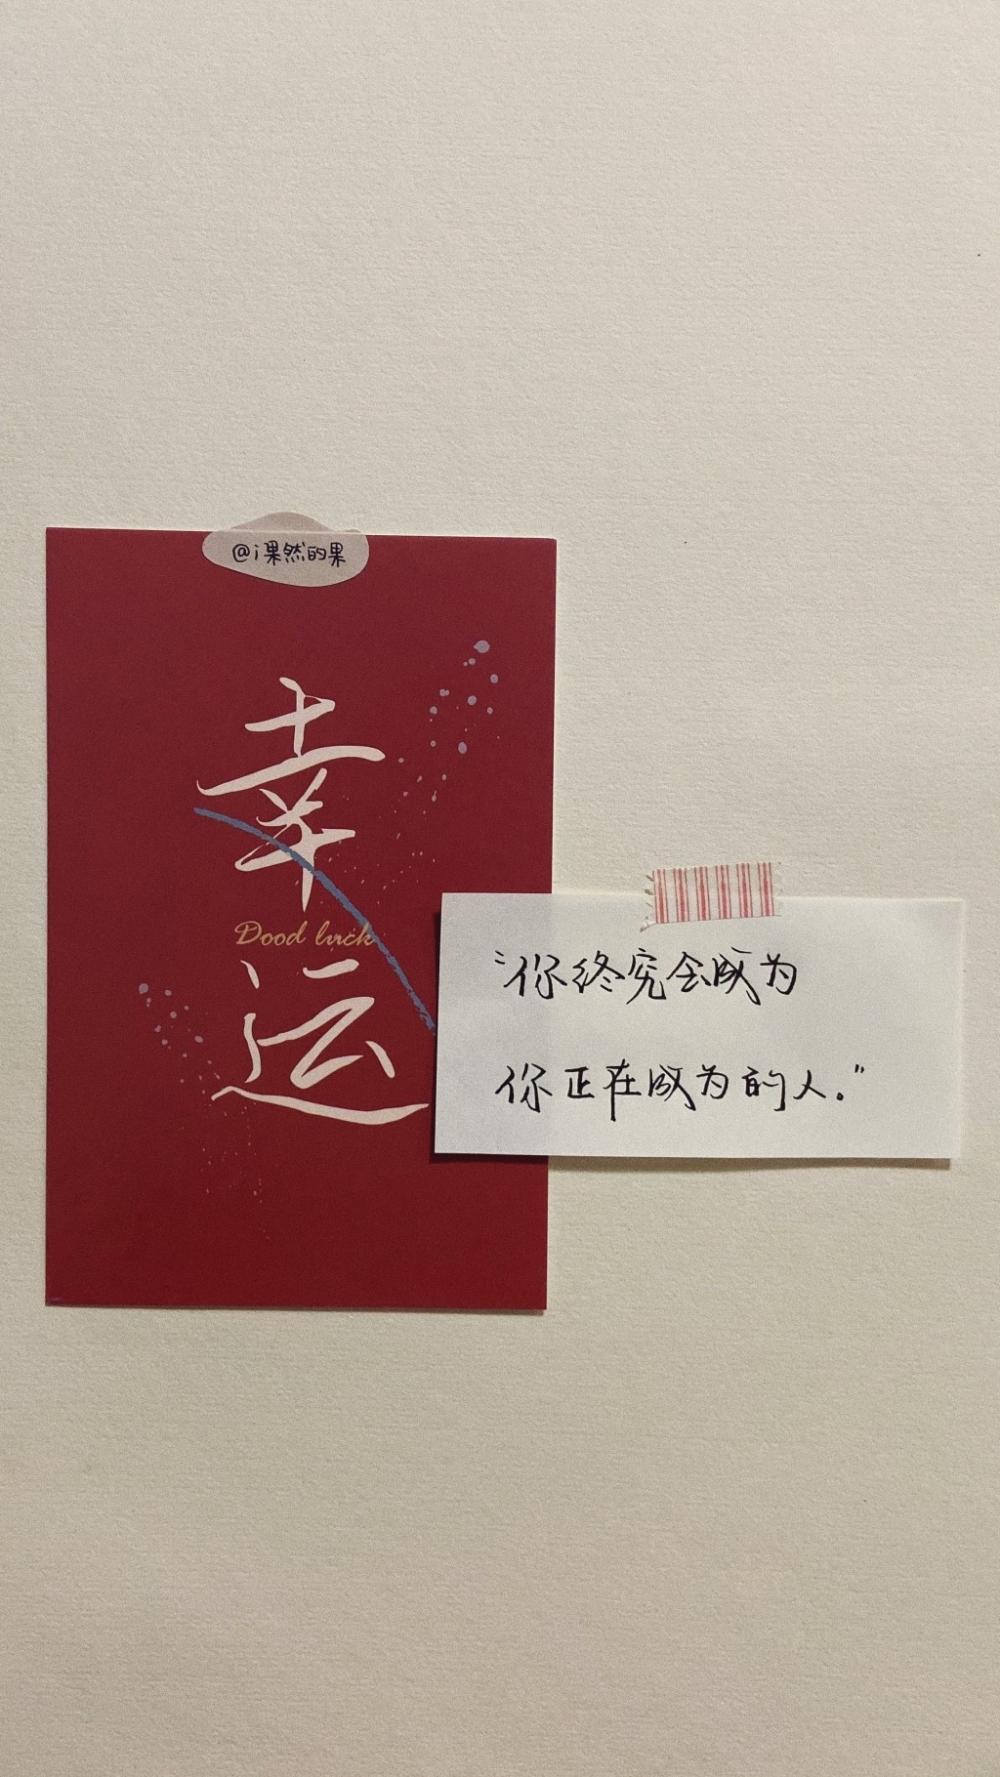 @i果然的果
幸
Dood luck
运
“你终究会成为
你正在成为的人。”